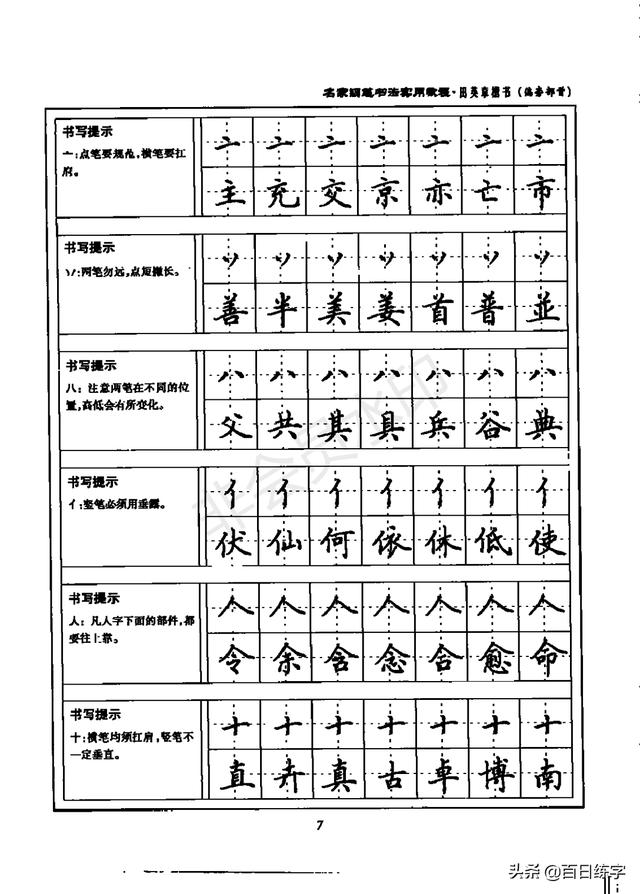 名家钢笔书法实用教程·田英章楷书(偏旁部首)
书写提示
亠:点笔要规范,横笔要扛
肩。
亠 亠 亠 亠 亠 亠 亠
主 充 交 京 亦 亡 市
书写提示
丷:两笔勿远,点短撇长。
丷 丷 丷 丷 丷 丷 丷
善 半 美 姜 首 普 並
书写提示
八: 注意两笔在不同的位
置,高低会有所变化。
八 八 八 八 八 八 八
父 共 其 具 兵 谷 典
书写提示
亻:竖笔必须用垂露。
亻 亻 亻 亻 亻 亻 亻
伏 仙 何 依 休 低 使
书写提示
人: 凡人字下面的部件,都
要往上靠。
人 人 人 人 人 人 人
令 余 含 念 舍 愈 命
书写提示
十:横笔均须扛肩,竖笔不
一定垂直。
十 十 十 十 十 十 十
直 卉 真 古 卓 博 南
非会员水印
7
头条 @百日练字